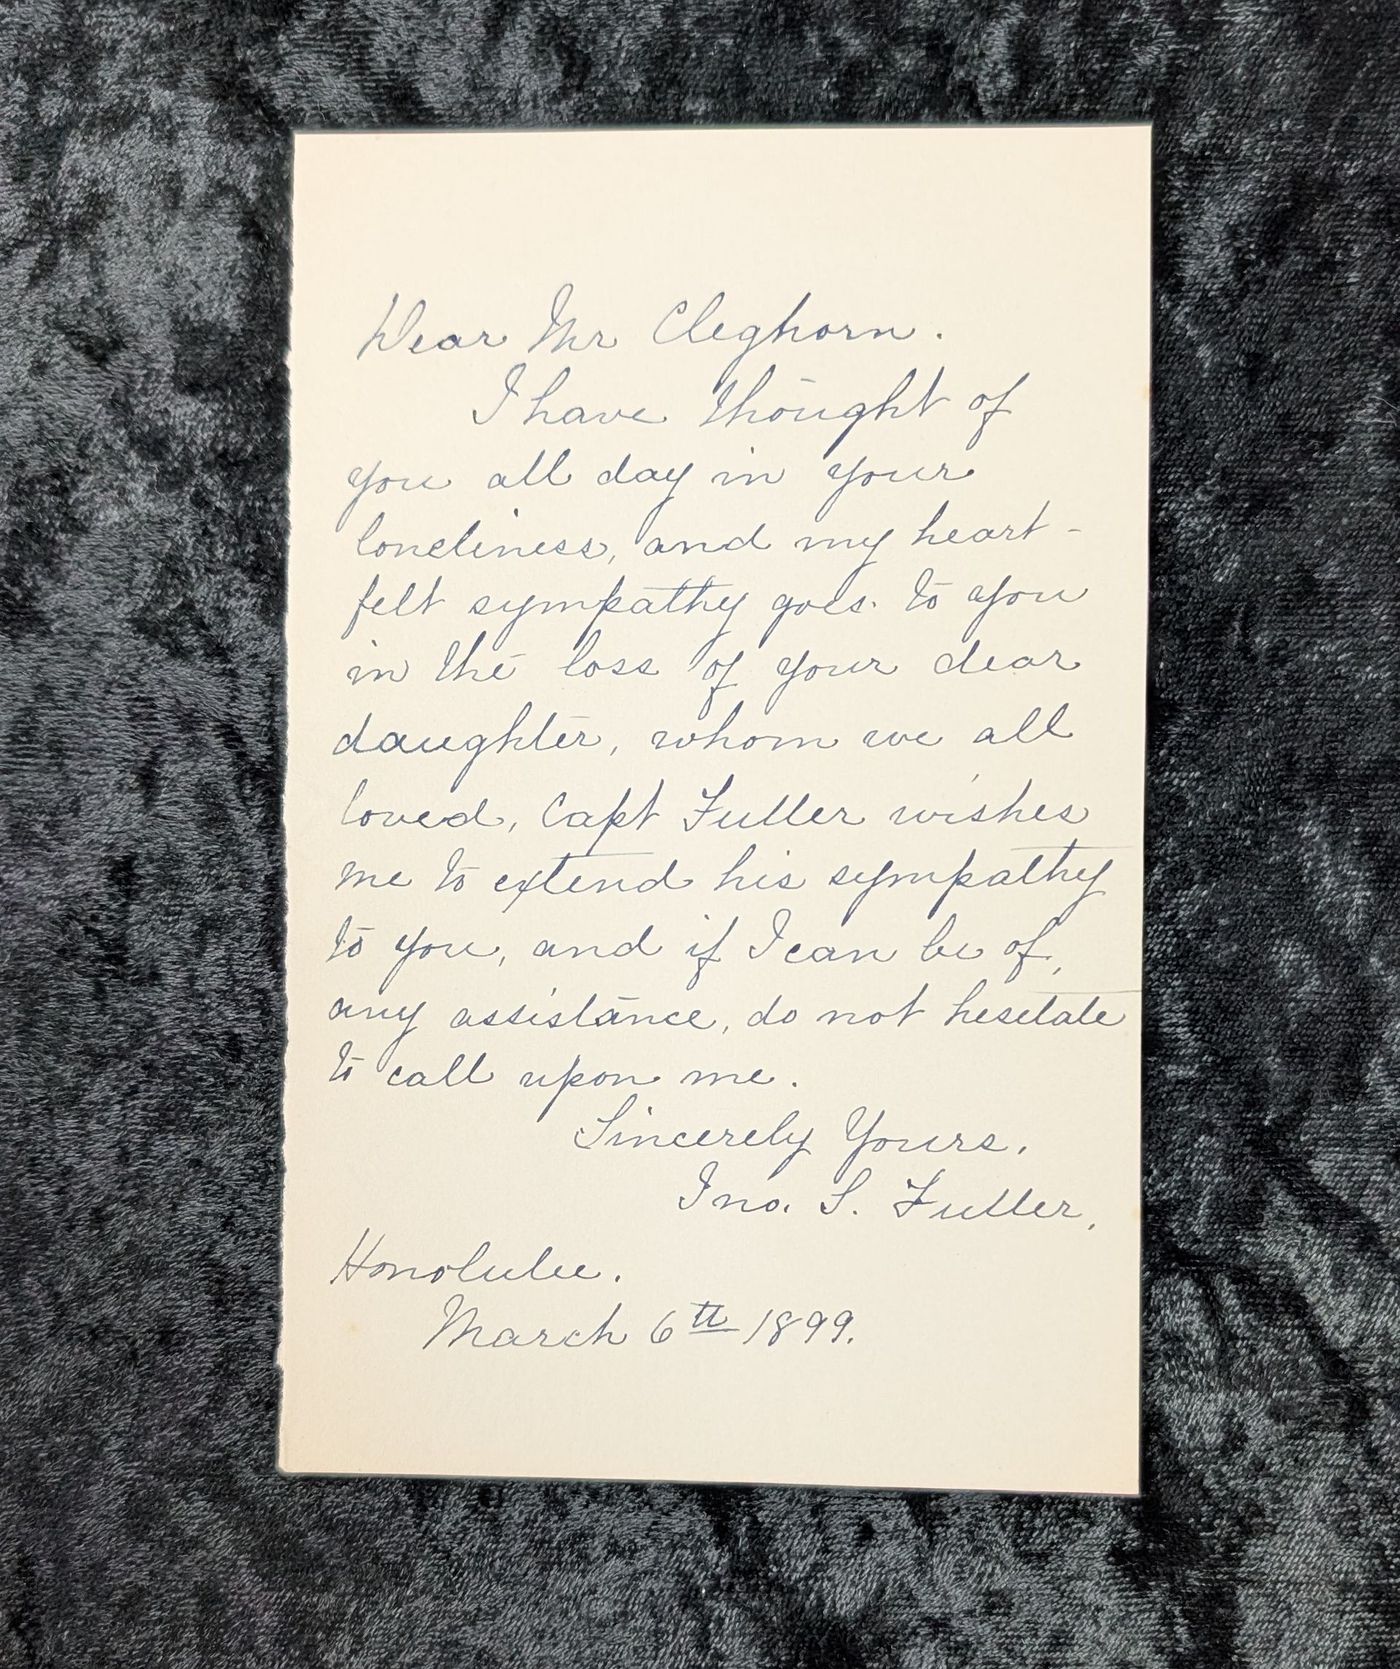 Dear Mr Cleghorn.
I have thought of
you all day in your
loneliness, and my heart-
felt sympathy goes to you
in the loss of your dear
daughter, whom we all
loved, Capt Fuller wishes
me to extend his sympathy
to you, and if I can be of,
any assistance, do not hesitate
to call upon me.
Sincerely Yours,
Jno. S. Fuller,
Honolulu.
March 6th 1899.